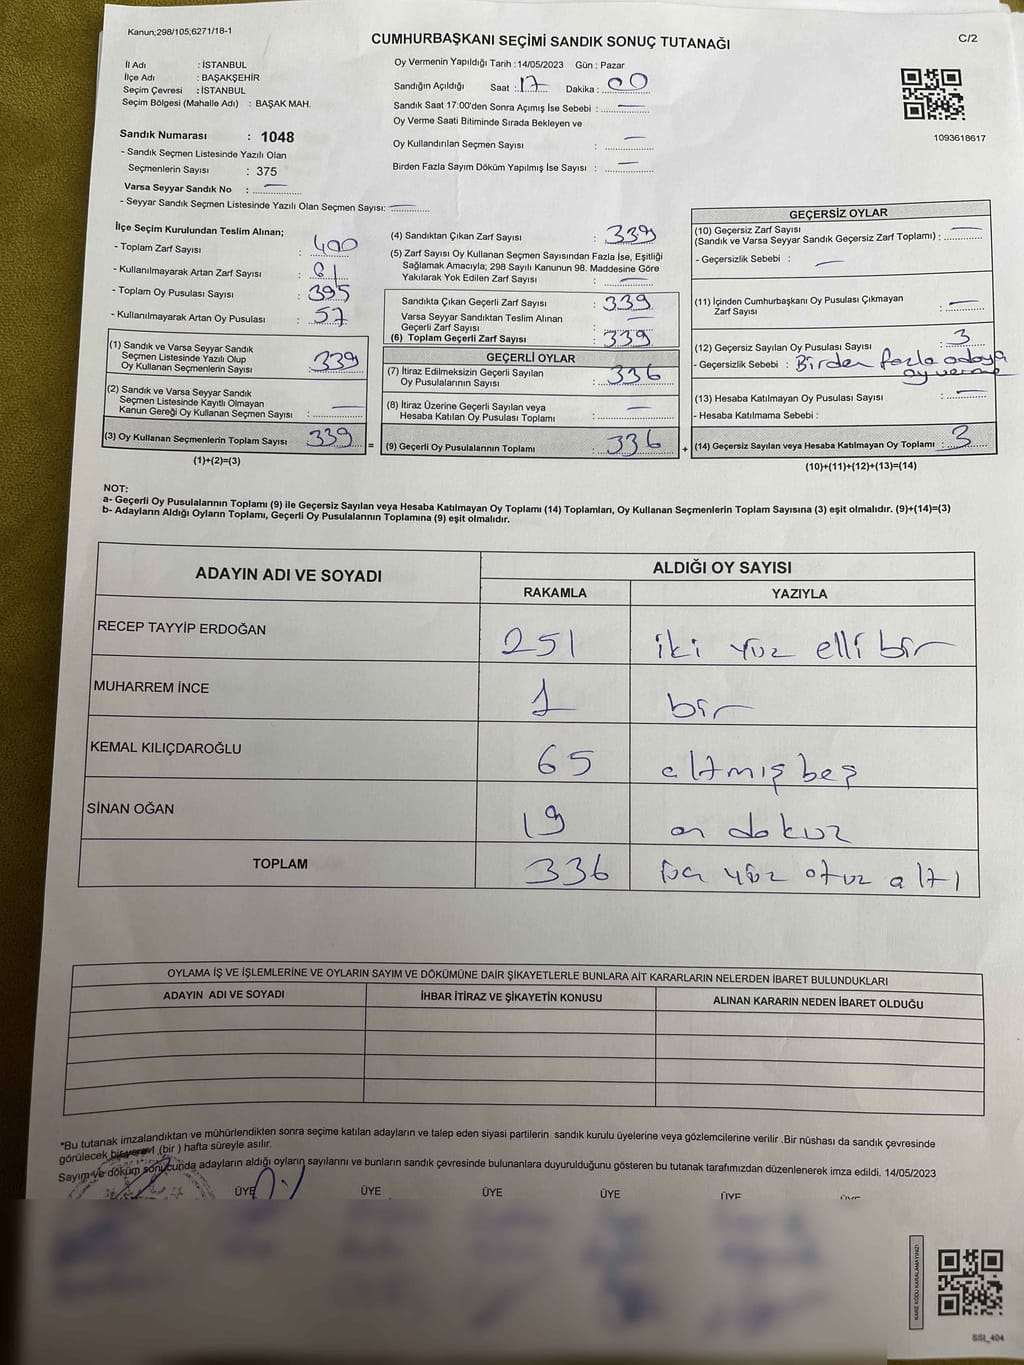 Kanun;298/105;6271/18-1
CUMHURBAŞKANI SEÇİMİ SANDIK SONUÇ TUTANAĞI
C/2
İl Adı : İSTANBUL
İlçe Adı : BAŞAKŞEHİR
Seçim Çevresi : İSTANBUL
Seçim Bölgesi (Mahalle Adı) : BAŞAK MAH.
Sandık Numarası : 1048
- Sandık Seçmen Listesinde Yazılı Olan
Seçmenlerin Sayısı : 375
Varsa Seyyar Sandık No : —
- Seyyar Sandık Seçmen Listesinde Yazılı Olan Seçmen Sayısı: —
Oy Vermenin Yapıldığı Tarih : 14/05/2023 Gün : Pazar
Sandığın Açıldığı Saat : 17 Dakika : 00
Sandık Saat 17:00'den Sonra Açımış İse Sebebi : —
Oy Verme Saati Bitiminde Sırada Bekleyen ve
Oy Kullandırılan Seçmen Sayısı : —
Birden Fazla Sayım Döküm Yapılmış İse Sayısı : —
1093618617
İlçe Seçim Kurulundan Teslim Alınan;
- Toplam Zarf Sayısı : 400
- Kullanılmayarak Artan Zarf Sayısı : 61
- Toplam Oy Pusulası Sayısı : 395
- Kullanılmayarak Artan Oy Pusulası : 57
(1) Sandık ve Varsa Seyyar Sandık
Seçmen Listesinde Yazılı Olup
Oy Kullanan Seçmenlerin Sayısı : 339
(2) Sandık ve Varsa Seyyar Sandık
Seçmen Listesinde Kayıtlı Olmayan
Kanun Gereği Oy Kullanan Seçmen Sayısı : —
(3) Oy Kullanan Seçmenlerin Toplam Sayısı : 339
(1)+(2)=(3)
=
(4) Sandıktan Çıkan Zarf Sayısı : 339
(5) Zarf Sayısı Oy Kullanan Seçmen Sayısından Fazla İse, Eşitliği
Sağlamak Amacıyla; 298 Sayılı Kanunun 98. Maddesine Göre
Yakılarak Yok Edilen Zarf Sayısı : —
Sandıkta Çıkan Geçerli Zarf Sayısı : 339
Varsa Seyyar Sandıktan Teslim Alınan
Geçerli Zarf Sayısı : —
(6) Toplam Geçerli Zarf Sayısı : 339
GEÇERLİ OYLAR
(7) İtiraz Edilmeksizin Geçerli Sayılan
Oy Pusulalarının Sayısı : 336
(8) İtiraz Üzerine Geçerli Sayılan veya
Hesaba Katılan Oy Pusulası Toplamı : —
(9) Geçerli Oy Pusulalarının Toplamı : 336
+
GEÇERSİZ OYLAR
(10) Geçersiz Zarf Sayısı
(Sandık ve Varsa Seyyar Sandık Geçersiz Zarf Toplamı) : —
- Geçersizlik Sebebi : —
(11) İçinden Cumhurbaşkanı Oy Pusulası Çıkmayan
Zarf Sayısı : —
(12) Geçersiz Sayılan Oy Pusulası Sayısı : 3
- Geçersizlik Sebebi : Birden fazla adaya
oy verme
(13) Hesaba Katılmayan Oy Pusulası Sayısı : —
- Hesaba Katılmama Sebebi :
(14) Geçersiz Sayılan veya Hesaba Katılmayan Oy Toplamı : 3
(10)+(11)+(12)+(13)=(14)
NOT:
a- Geçerli Oy Pusulalarının Toplamı (9) ile Geçersiz Sayılan veya Hesaba Katılmayan Oy Toplamı (14) Toplamları, Oy Kullanan Seçmenlerin Toplam Sayısına (3) eşit olmalıdır. (9)+(14)=(3)
b- Adayların Aldığı Oyların Toplamı, Geçerli Oy Pusulalarının Toplamına (9) eşit olmalıdır.
ADAYIN ADI VE SOYADI
ALDIĞI OY SAYISI
RAKAMLA YAZIYLA
RECEP TAYYİP ERDOĞAN 251 iki yüz elli bir
MUHARREM İNCE 1 bir
KEMAL KILIÇDAROĞLU 65 altmış beş
SİNAN OĞAN 19 on dokuz
TOPLAM 336 üç yüz otuz altı
OYLAMA İŞ VE İŞLEMLERİNE VE OYLARIN SAYIM VE DÖKÜMÜNE DAİR ŞİKAYETLERLE BUNLARA AİT KARARLARIN NELERDEN İBARET BULUNDUKLARI
ADAYIN ADI VE SOYADI İHBAR İTİRAZ VE ŞİKAYETİN KONUSU ALINAN KARARIN NEDEN İBARET OLDUĞU
*Bu tutanak imzalandıktan ve mühürlendikten sonra seçime katılan adayların ve talep eden siyasi partilerin sandık kurulu üyelerine veya gözlemcilerine verilir .Bir nüshası da sandık çevresinde
görülecek bir yere (bir ) hafta süreyle asılır.
Sayım ve döküm sonucunda adayların aldığı oyların sayılarını ve bunların sandık çevresinde bulunanlara duyurulduğunu gösteren bu tutanak tarafımızdan düzenlenerek imza edildi. 14/05/2023
ÜYE ÜYE ÜYE ÜYE ÜYE ÜYE
KARE KODU KARALAMAYINIZ!
SSI_404